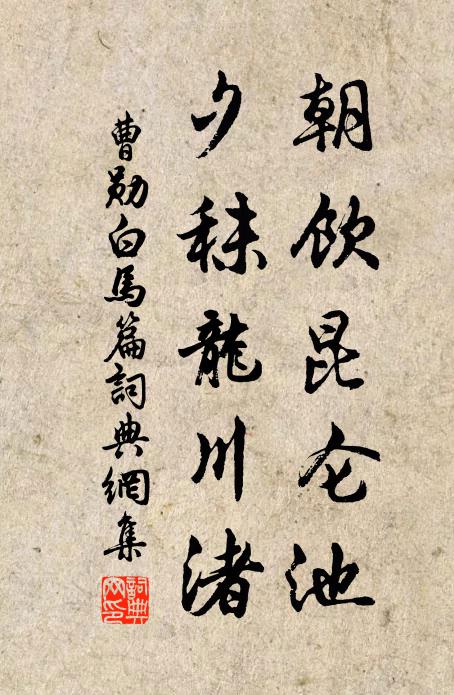 朝飲昆仑池
夕秣龍川渚
曹勛白馬篇詞典網集
詞典
网印